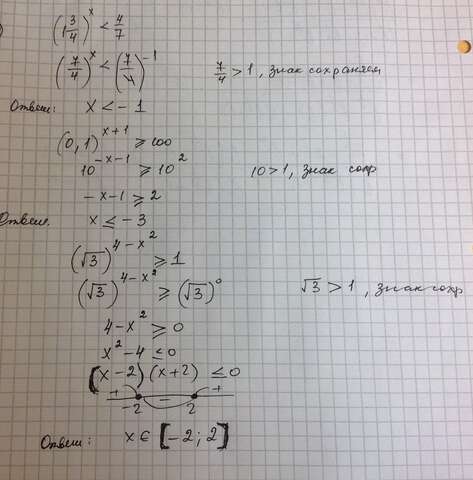 (1 3/4)^x < 4/7
(7/4)^x < (7/4)^-1     7/4 > 1, знак сохраняем
Ответ: x < -1
(0,1)^x+1 ⩾ 100
10^-x-1 ⩾ 10^2     10 > 1, знак сохр
-x-1 ⩾ 2
Ответ. x ≤ -3
(√3)^4-x^2 ⩾ 1
(√3)^4-x^2 ⩾ (√3)^0     √3 > 1, знак сохр
4-x^2 ⩾ 0
x^2-4 ≤ 0
(x-2)(x+2) ≤ 0
+ - +
-2 2
Ответ: x ∈ [-2; 2]